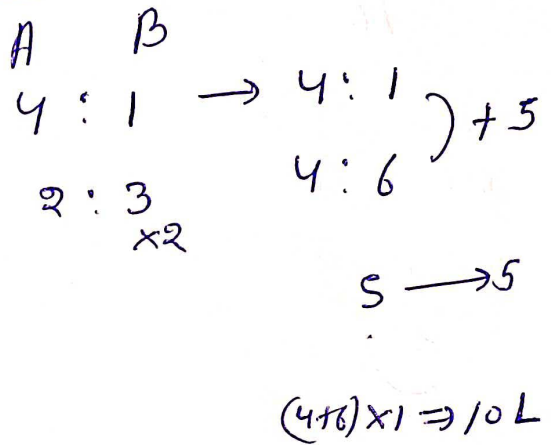 A B
4 : 1 → 4 : 1
4 : 6 ) + 5
2 : 3
×2
5 → 5
(4+6)×1 ⇒ 10 L